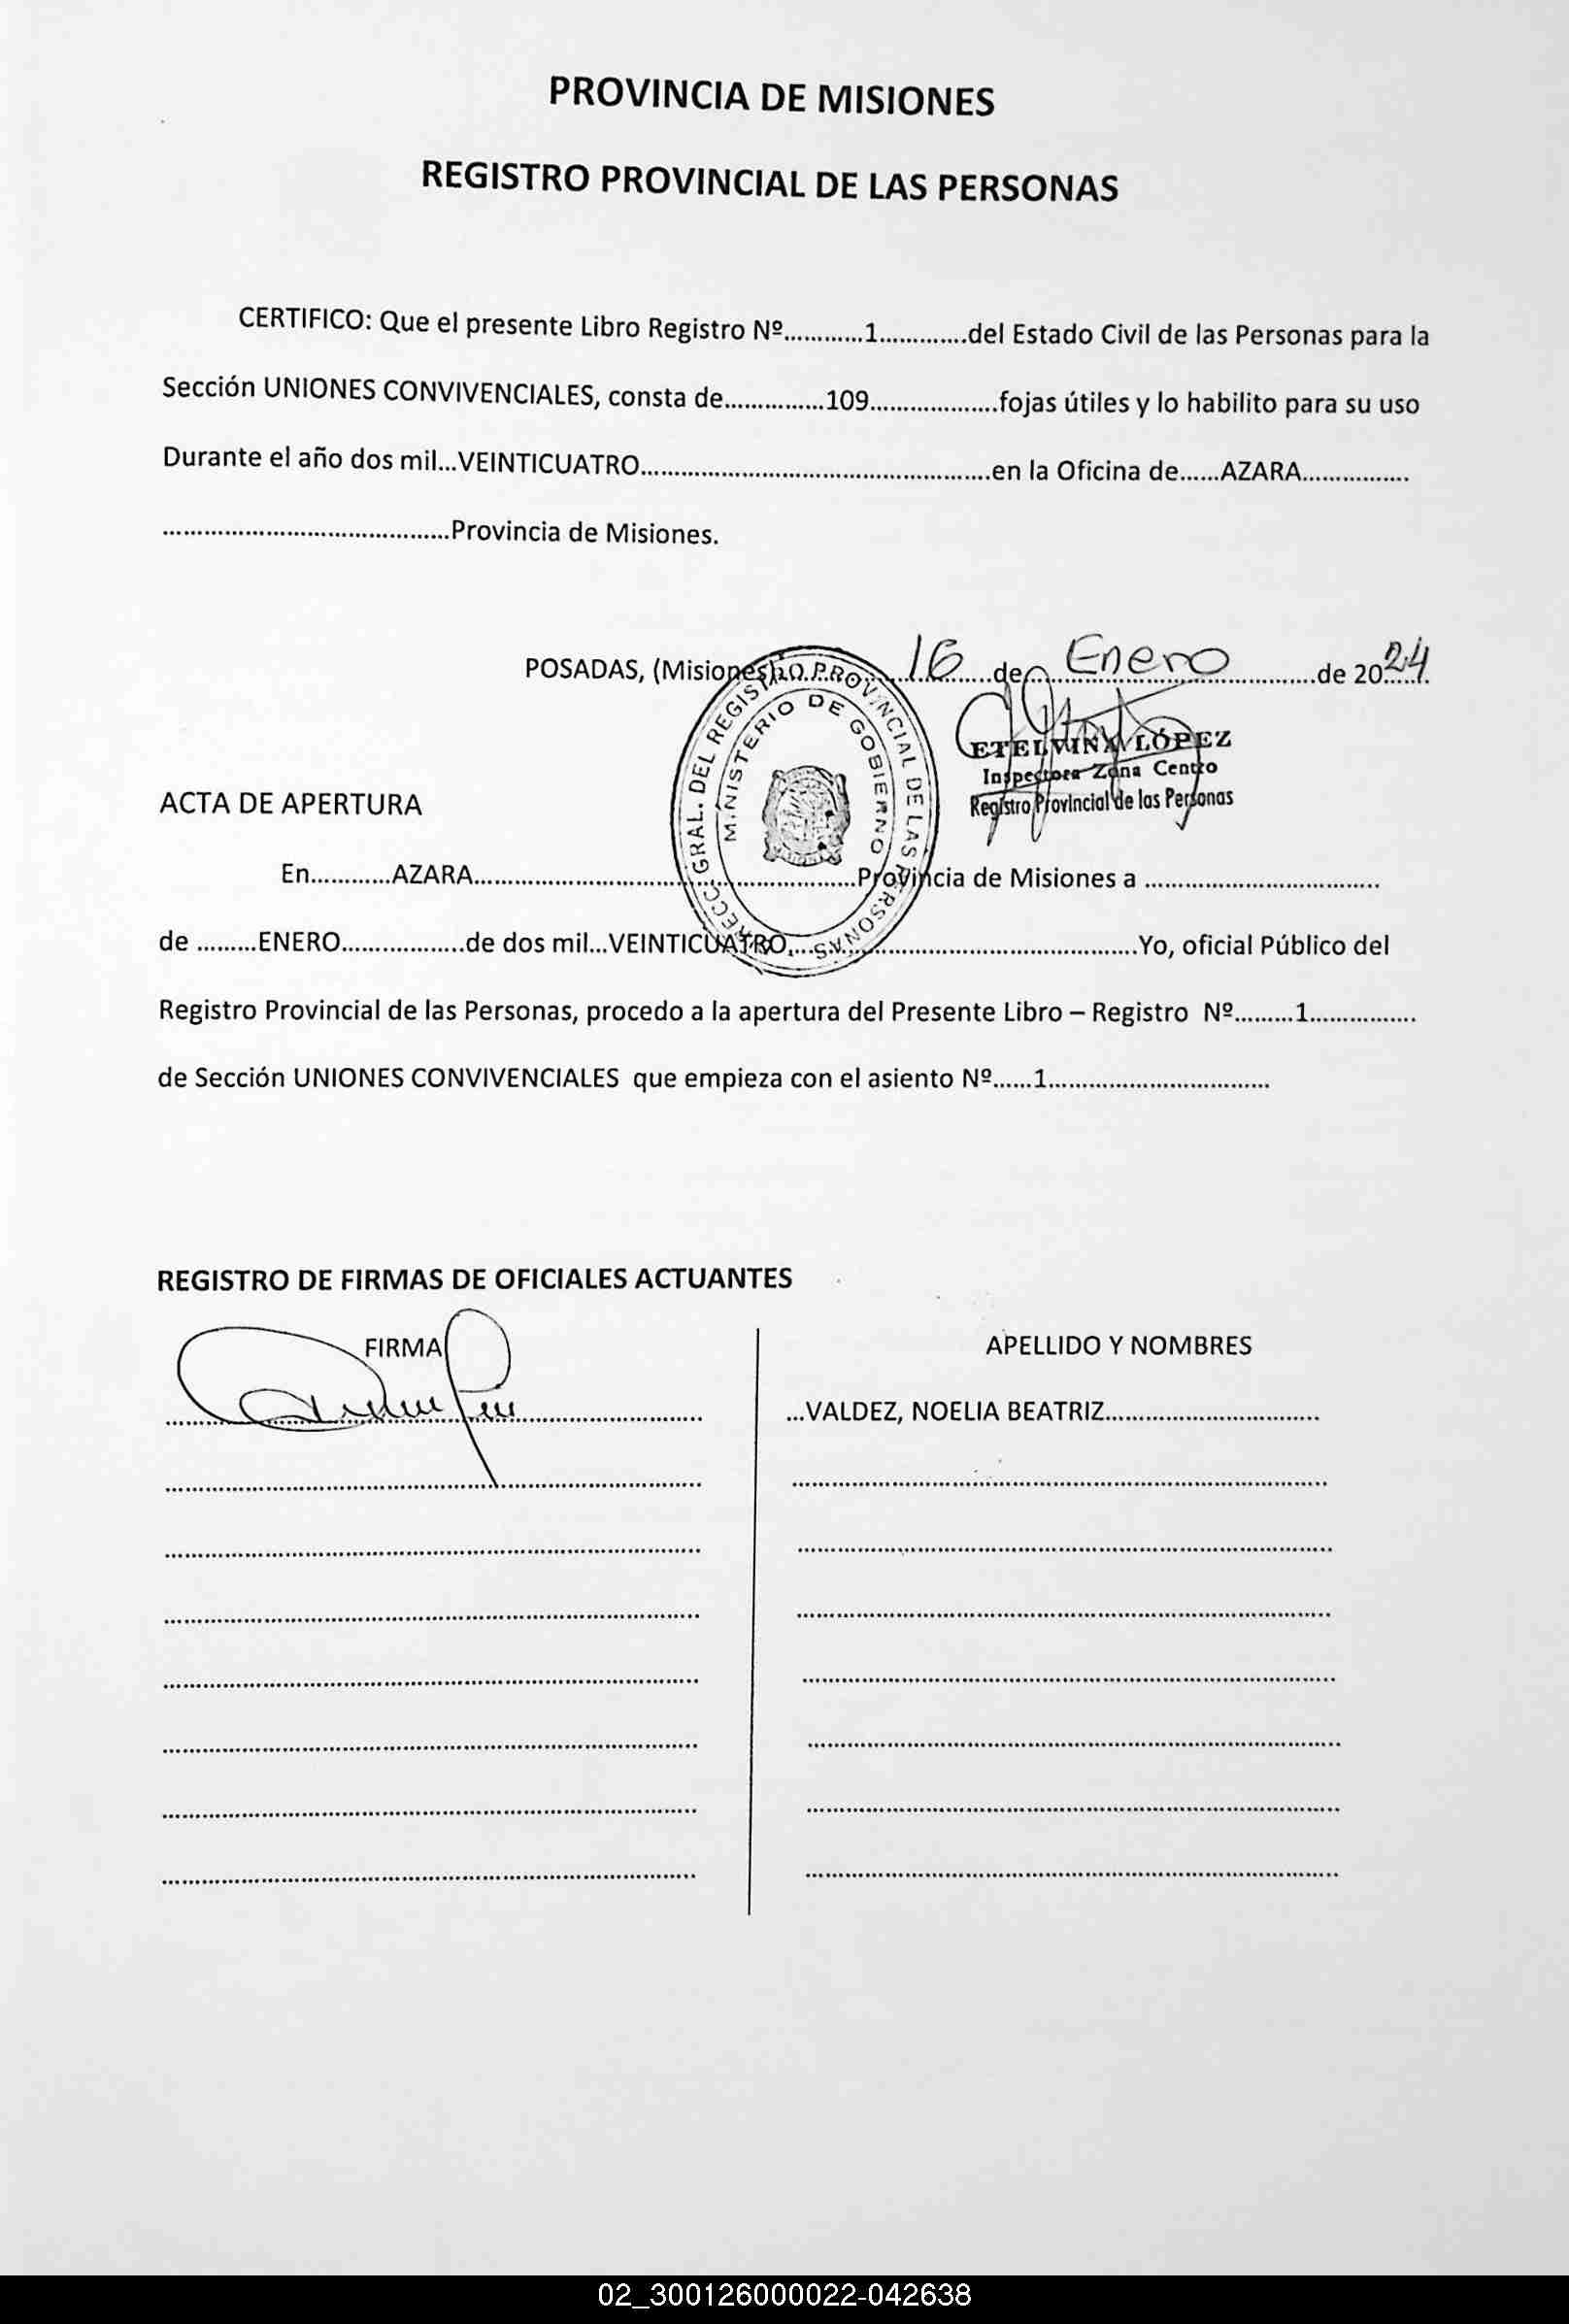 PROVINCIA DE MISIONES
REGISTRO PROVINCIAL DE LAS PERSONAS
CERTIFICO: Que el presente Libro Registro Nº............1.............del Estado Civil de las Personas para la
Sección UNIONES CONVIVENCIALES, consta de...............109...................fojas útiles y lo habilito para su uso
Durante el año dos mil...VEINTICUATRO.....................................................en la Oficina de......AZARA................
...........................................Provincia de Misiones.
POSADAS, (Misiones)..................16.....de....Enero..............de 2024.
DIRECC. GRAL. DEL REGISTRO PROVINCIAL DE LAS PERSONAS
MINISTERIO DE GOBIERNO
ETELVINA LÓPEZ
Inspectora Zona Centro
Registro Provincial de las Personas
ACTA DE APERTURA
En............AZARA..........................................................Provincia de Misiones a ...................................
de .........ENERO..................de dos mil...VEINTICUATRO.....................................................Yo, oficial Público del
Registro Provincial de las Personas, procedo a la apertura del Presente Libro – Registro Nº.........1................
de Sección UNIONES CONVIVENCIALES que empieza con el asiento Nº......1.................................
REGISTRO DE FIRMAS DE OFICIALES ACTUANTES
FIRMA
APELLIDO Y NOMBRES
...VALDEZ, NOELIA BEATRIZ................................
02_300126000022-042638